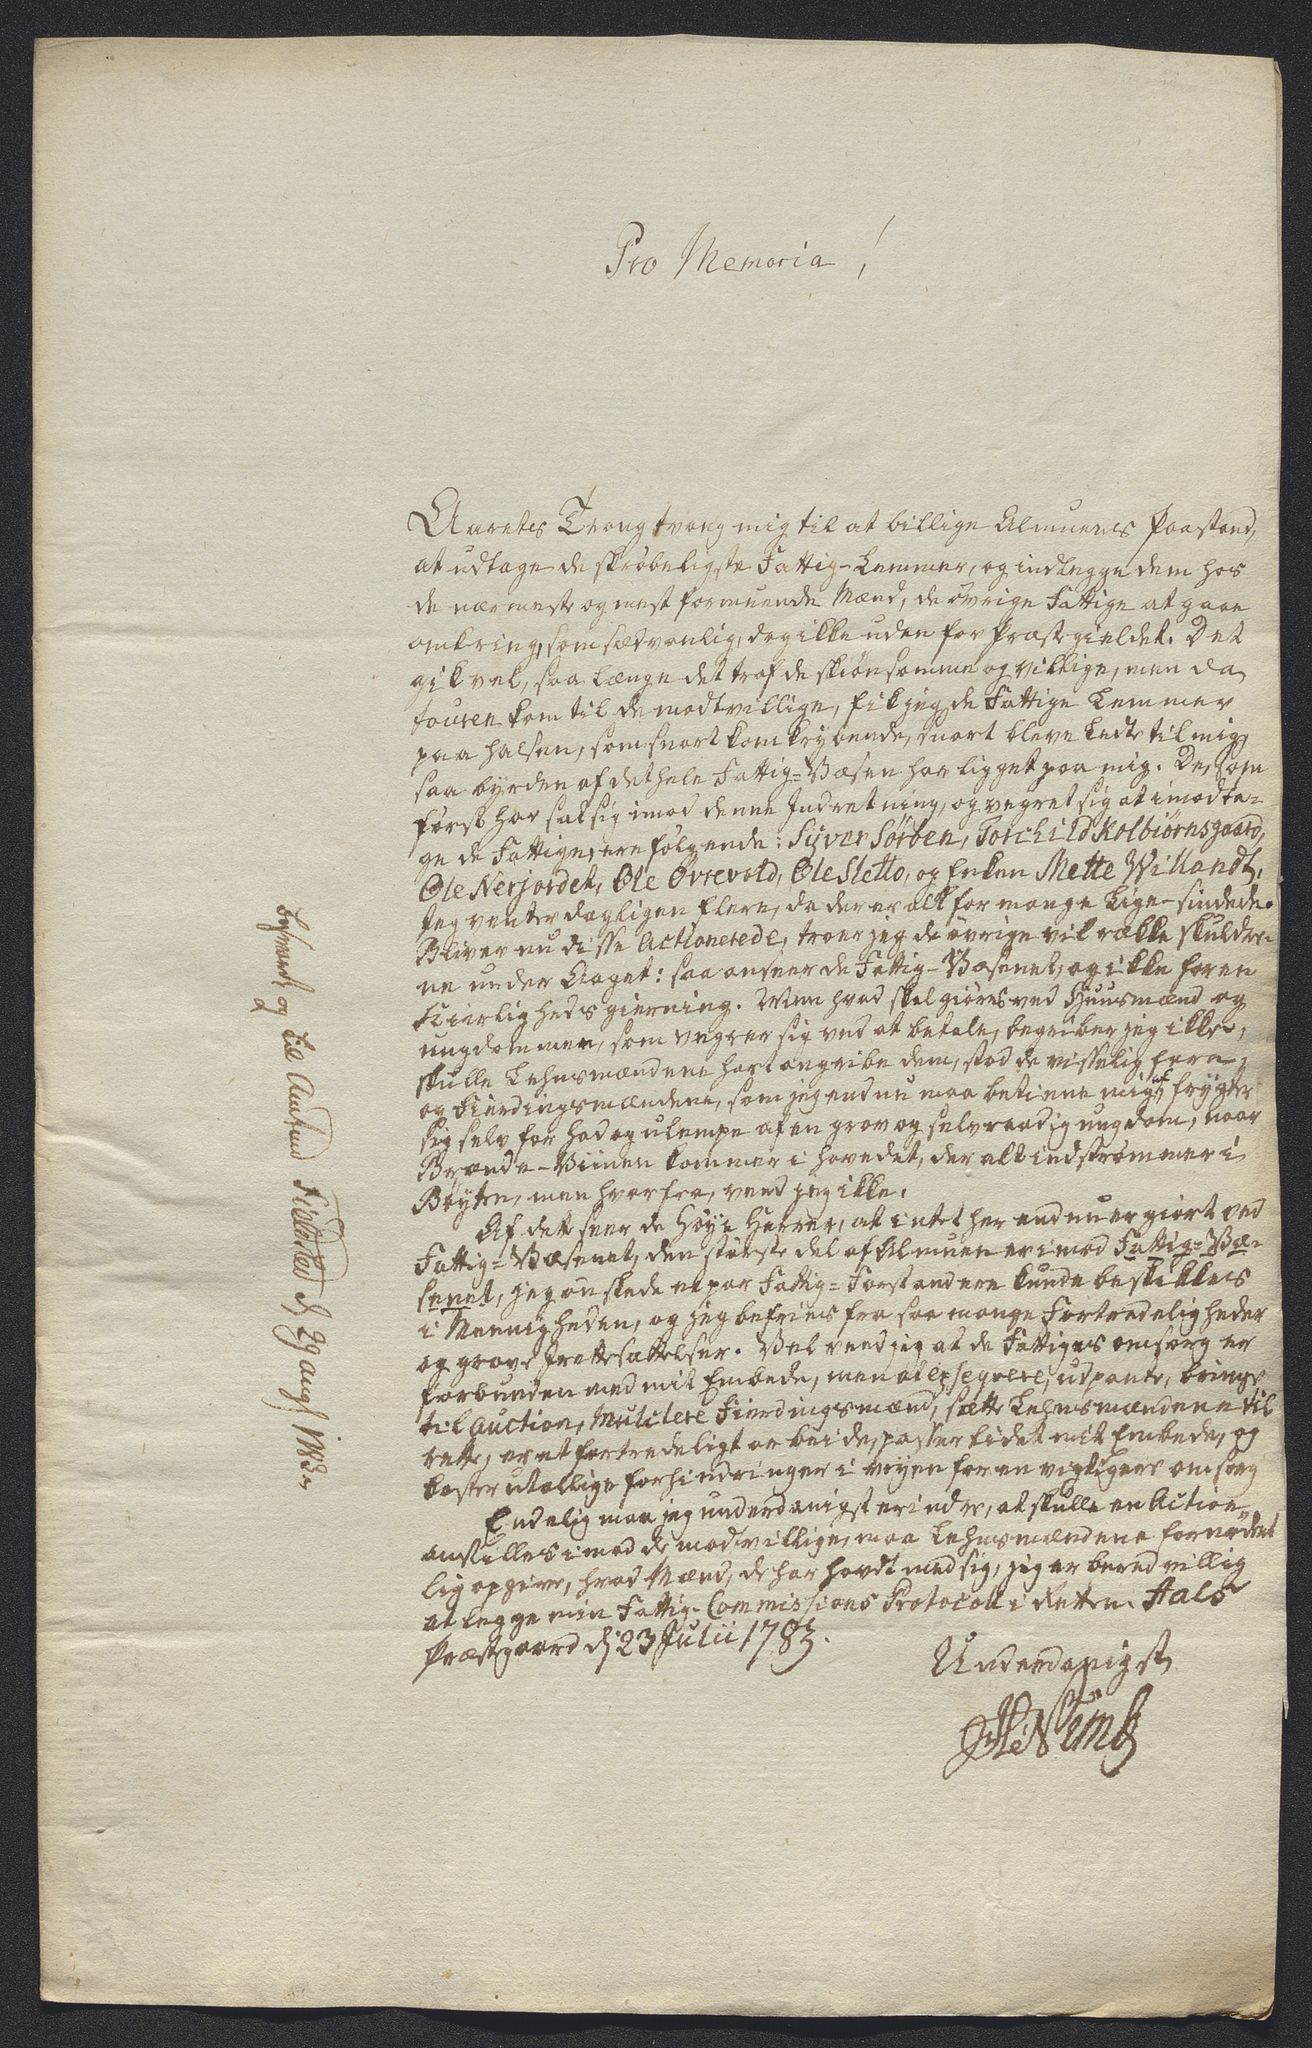 Pro Memoria!
Aarets Trang tvang mig til at billige Almuens Paastand,
at udtage de skrøbeligste Fattig-Lemmer, og indlegge dem hos
de nærmeste og mest formuende Mænd, de øvrige Fattige at gaae
omkring, som sædvanlig, dog ikke uden for Præstegieldet. Det
gik vel, saa længe det traf de skiønsomme og villige, men da
touren kom til de modtvillige, fik jeg de Fattige Lemmer
paa halsen, som snart kom krybende, snart bleve ledte til mig,
saa byrden af det hele Fattig-Væsen har ligget paa mig. De, som
først har sat sig imod denne Indretning, og vegret sig at imodta-
ge de Fattige, ere følgende: Siver Sörben, Torchild Kolbiörnsgaard,
Ole Nerjordet, Ole Övrevold, Ole Sletto, og Enken Mette Willandtz.
Jeg venter dagligen flere, da der er alt for mange Lige-sindede.
Bliver nu disse Actionerede, troer jeg de øvrige vil række skuldre-
ne under Aaget: saa anseer de Fattig-Væsenet, og ikke for en
Kierligheds gierning. Men hvad skal giøres ved Huusmænd og
ungdommen, som vegrer sig ved at betale, begriber jeg ikke,
skulle Lehnsmændene hart angribe dem, stod de visselig fare,
og Fierdingsmændene, som jeg endnu maa betiene mig af, frygter
sig selv for had og ulempe af en grov og selvraadig ungdom, naar
Brænde-Viinen kommer i hovedet, der alt indstrømmer i
Bøyten, men hvorfra, veed jeg ikke.
Af dette seer de Høye Herrer, at intet her endnu er giort ved
Fattig-Væsenet, den største del af Almuen er imod Fattig-Væ-
senet, jeg ønskede et par Fattig-Forstandere kunde beskikkes
i Menigheden, og jeg befries fra saa mange Fortredeligheder
og grove Irettesættelser. Vel veed jeg at de Fattiges omsorg er
forbunden med mit Embede, men at exseqvere, udpante, bringe
til Auction, Mulctere Fierdingsmænd, sætte Lehnsmændene til
rette, er et fortredeligt arbeide, passer lidet mit Embede, og
kaster utallige forhindringer i veyen for en vigtigere omsorg
Endelig maa jeg underdanigst erindre, at skulle en Action
anstilles imod de modvillige, maa Lehnsmændene fornødent
lig opgive, hvad Mænd, de har havdt med sig, jeg er beredvillig
at legge min Fattig-Commissions Protocoll i Retten. Aals
Præstegaard d. 23 Julii 1783.
Underdanigst
besvaret og til Amtmd d. 29 aug. 1783.